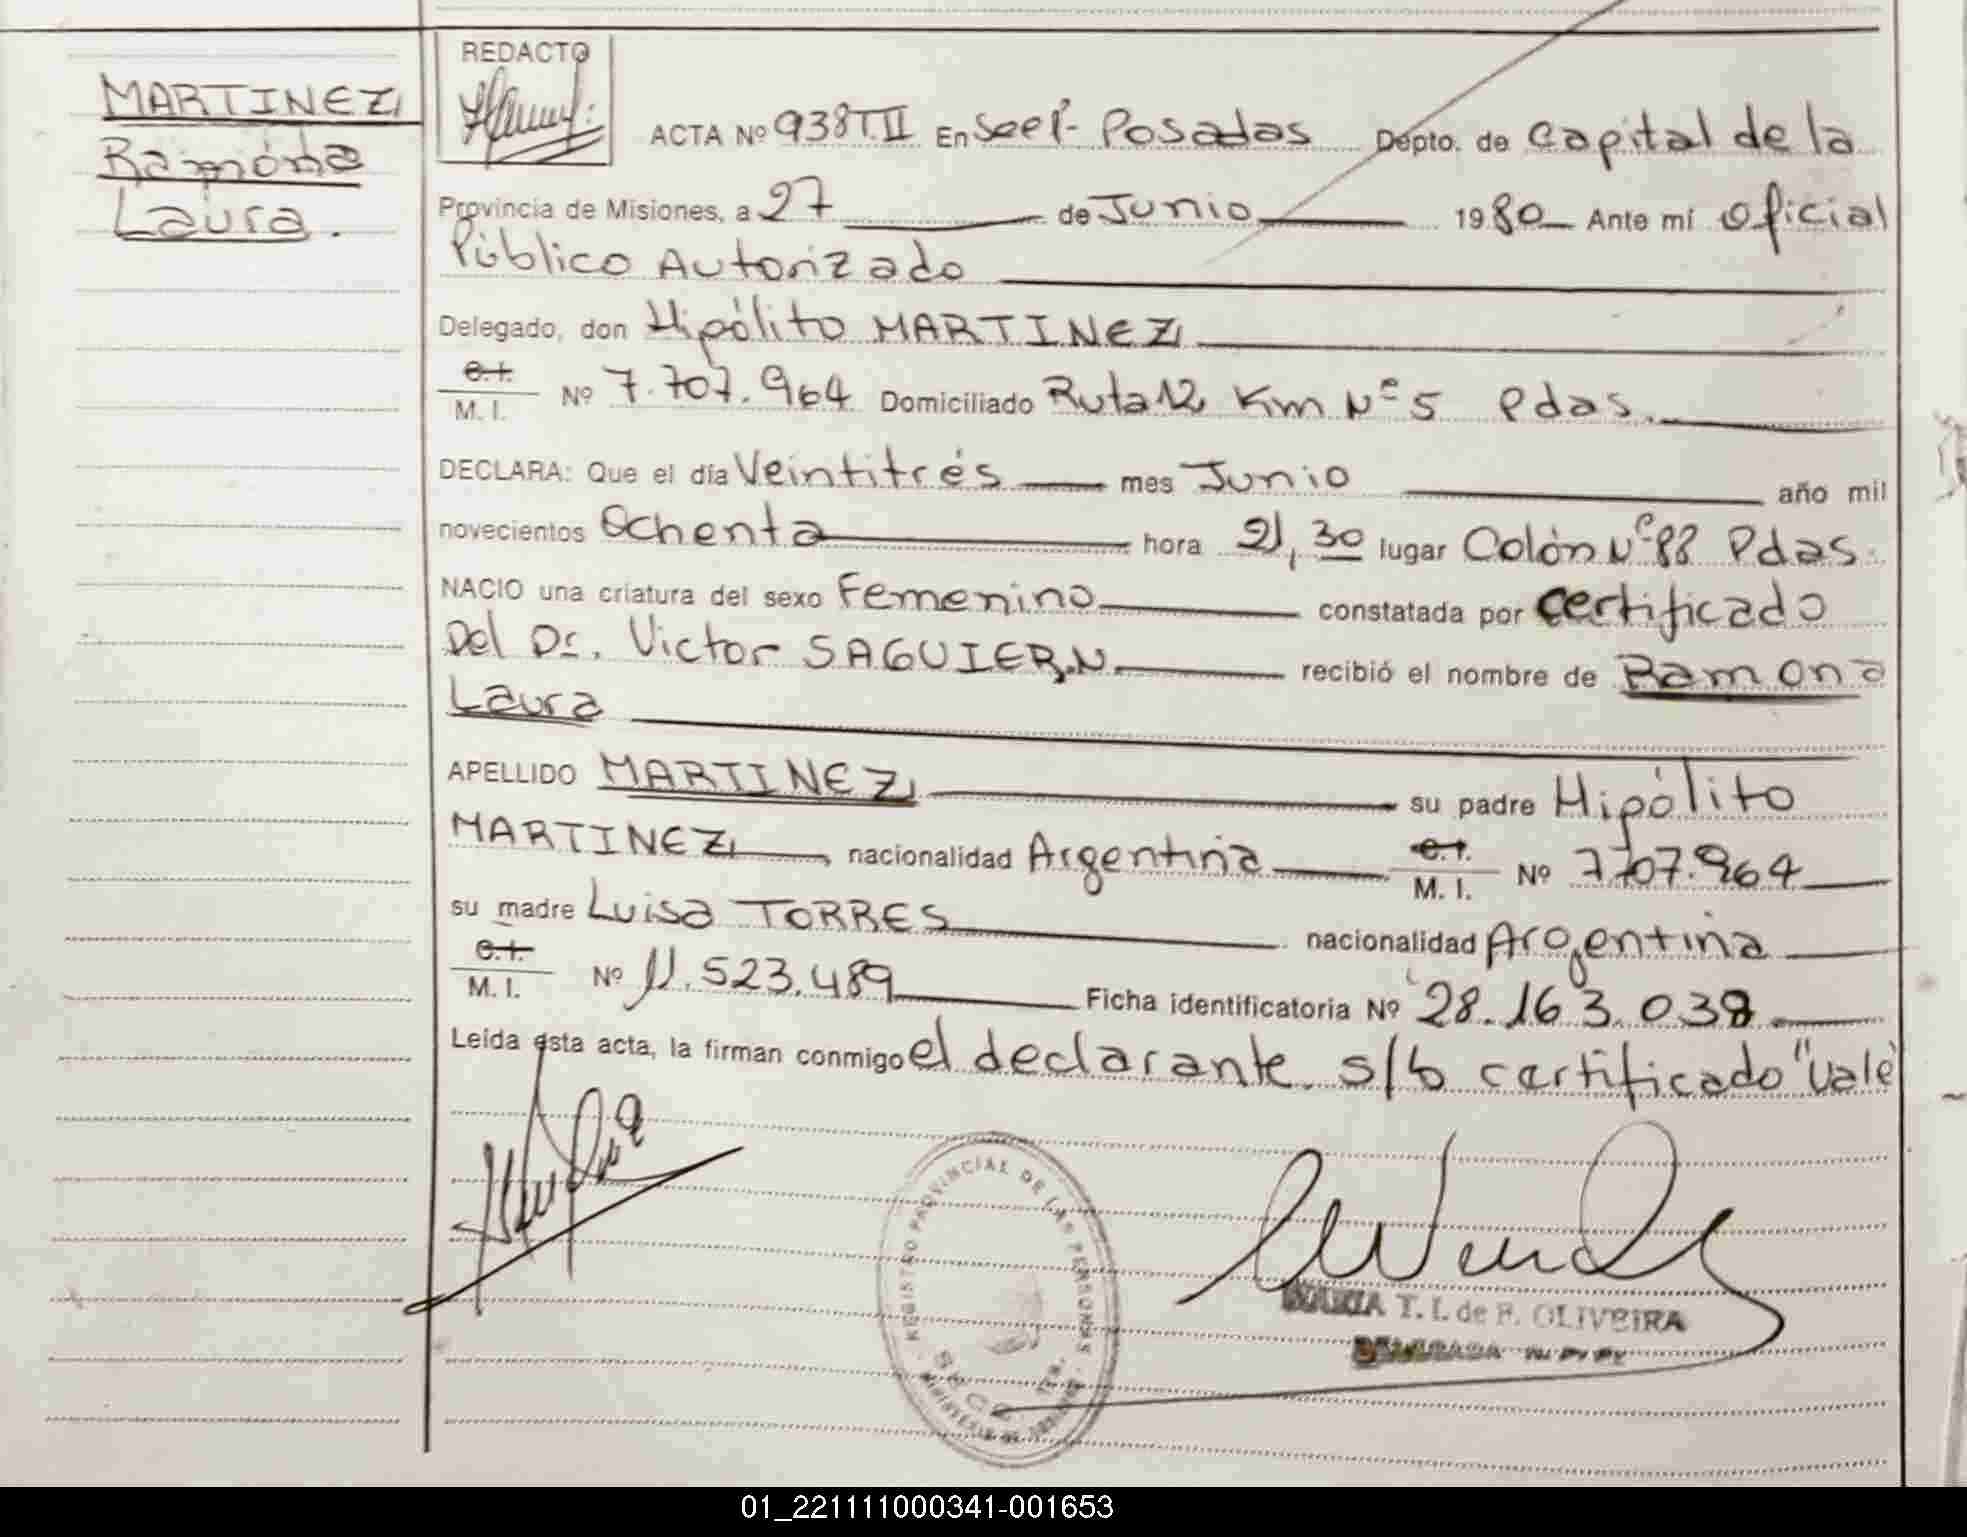 MARTINEZ
Ramona
Laura.
REDACTO
ACTA Nº 938 T.II En Seel- Posadas Depto. de Capital de la
Provincia de Misiones, a 27 de Junio 1980 Ante mí Oficial
Público Autorizado
Delegado, don Hipólito MARTINEZ
C.I.
M. I. Nº 7.707.964 Domiciliado Ruta 12 Km Nº 5 Pdas.
DECLARA: Que el día Veintitrés mes Junio año mil
novecientos Ochenta hora 21,30 lugar Colón Nº 88 Pdas.
NACIO una criatura del sexo Femenino constatada por certificado
Del Dr. Victor SAGUIER.N. recibió el nombre de Ramona
Laura
APELLIDO MARTINEZ su padre Hipólito
MARTINEZ nacionalidad Argentina C.I. M. I. Nº 7707.964
su madre Luisa TORRES nacionalidad Argentina
C.I.
M. I. Nº 11.523.489 Ficha identificatoria Nº 28.163.038
Leída esta acta, la firman conmigo el declarante. s/b certificado "Vale
REGISTRO PROVINCIAL DE LAS PERSONAS
MARIA T. I. de F. OLIVEIRA
DELEGADA
01_221111000341-001653